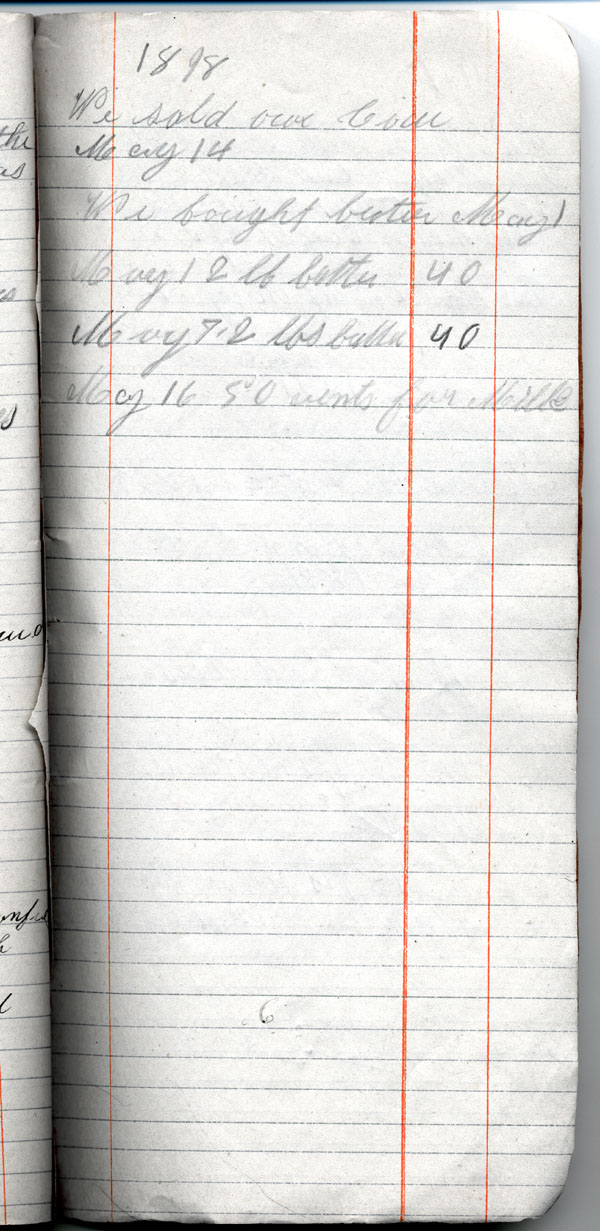 1898
We sold our Cow
May 14
We bought butter May 1
May 1 2 lb butter 40
May 7 · 2 lbs butter 40
May 16 50 cents for Milk
6
the
as